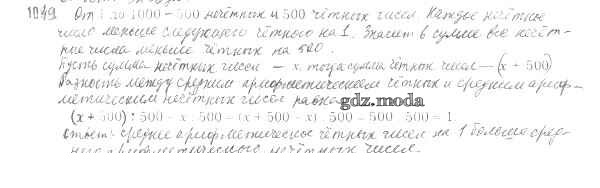 1049 От 1 до 1000 – 500 нечётных и 500 чётных чисел. Каждое нечётное
число меньше следующего чётного на 1. Значит в сумме все нечёт-
ные числа меньше чётных на 500.
Пусть сумма нечётных чисел – x, тогда сумма чётных чисел – (x + 500)
Разность между средним арифметическим чётных и средним ариф-
метическим нечётных чисел равна
gdz.moda
(x + 500) : 500 - x : 500 = (x + 500 - x) : 500 = 500 : 500 = 1
Ответ: среднее арифметическое чётных чисел на 1 больше сред-
него арифметического нечётных чисел.